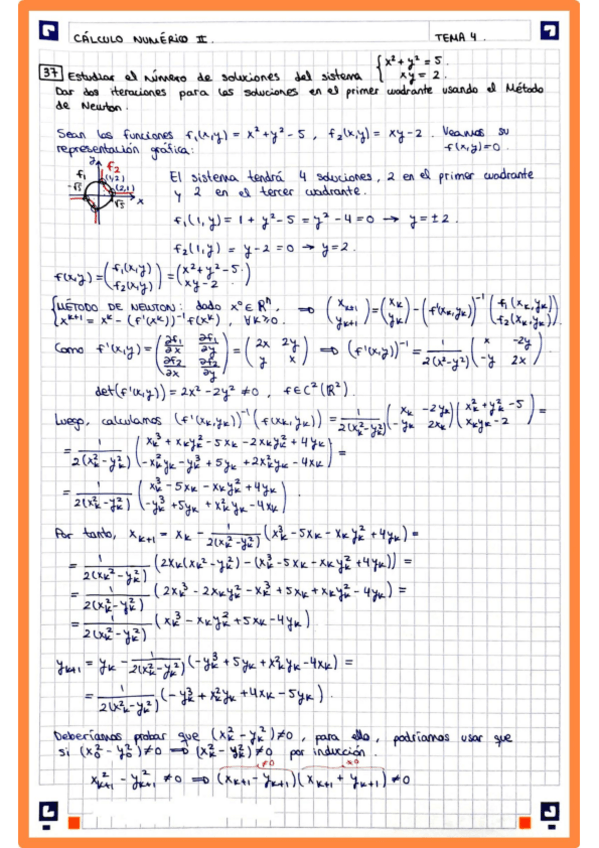 CÁLCULO NUMÉRICO II. TEMA 4.
37 Estudiar el número de soluciones del sistema { x² + y² = 5. xy = 2.
Dar dos iteraciones para las soluciones en el primer cuadrante usando el Método
de Newton.
Sean las funciones f₁(x,y) = x² + y² - 5, f₂(x,y) = xy - 2. Veamos su
representación gráfica: f(x,y) = 0.
y f₂
f₁ (1,2)
-√5 (2,1)
√5 x
El sistema tendrá 4 soluciones, 2 en el primer cuadrante
y 2 en el tercer cuadrante.
f₁(1,y) = 1 + y² - 5 = y² - 4 = 0 → y = ±2.
f₂(1,y) = y - 2 = 0 → y = 2.
f(x,y) = (f₁(x,y) f₂(x,y)) = (x² + y² - 5 xy - 2).
{ MÉTODO DE NEWTON: dado x⁰ ∈ ℝⁿ, ⟹ (xₖ₊₁ yₖ₊₁) = (xₖ yₖ) - (f'(xₖ,yₖ))⁻¹ (f₁(xₖ,yₖ) f₂(xₖ,yₖ)).
xᵏ⁺¹ = xᵏ - (f'(xᵏ))⁻¹ f(xᵏ), ∀k≥0
Como f'(x,y) = (∂f₁/∂x ∂f₁/∂y ∂f₂/∂x ∂f₂/∂y) = (2x 2y y x) ⟹ (f'(x,y))⁻¹ = 1/2(x²-y²) (x -2y -y 2x).
det(f'(x,y)) = 2x² - 2y² ≠ 0, f∈C²(ℝ²).
Luego, calculamos (f'(xₖ,yₖ))⁻¹ (f(xₖ,yₖ)) = 1/2(xₖ²-yₖ²) (xₖ -2yₖ -yₖ 2xₖ)(xₖ² + yₖ² - 5 xₖyₖ - 2) =
= 1/2(xₖ²-yₖ²) (xₖ³ + xₖyₖ² - 5xₖ - 2xₖyₖ² + 4yₖ -xₖ²yₖ - yₖ³ + 5yₖ + 2xₖ²yₖ - 4xₖ) =
= 1/2(xₖ²-yₖ²) (xₖ³ - 5xₖ - xₖyₖ² + 4yₖ -yₖ³ + 5yₖ + xₖ²yₖ - 4xₖ).
Por tanto, xₖ₊₁ = xₖ - 1/2(xₖ²-yₖ²) (xₖ³ - 5xₖ - xₖyₖ² + 4yₖ) =
= 1/2(xₖ²-yₖ²) (2xₖ(xₖ²-yₖ²) - (xₖ³ - 5xₖ - xₖyₖ² + 4yₖ)) =
= 1/2(xₖ²-yₖ²) (2xₖ³ - 2xₖyₖ² - xₖ³ + 5xₖ + xₖyₖ² - 4yₖ) =
= 1/2(xₖ²-yₖ²) (xₖ³ - xₖyₖ² + 5xₖ - 4yₖ).
yₖ₊₁ = yₖ - 1/2(xₖ²-yₖ²) (-yₖ³ + 5yₖ + xₖ²yₖ - 4xₖ) =
= 1/2(xₖ²-yₖ²) (-yₖ³ + xₖ²yₖ + 4xₖ - 5yₖ).
Deberíamos probar que (xₖ² - yₖ²) ≠ 0, para ello, podríamos usar que
si (x₀² - y₀²) ≠ 0 ⟹ (xₖ² - yₖ²) ≠ 0 por inducción.
≠0 ≠0
xₖ₊₁² - yₖ₊₁² ≠ 0 ⟹ (xₖ₊₁ - yₖ₊₁)(xₖ₊₁ + yₖ₊₁) ≠ 0